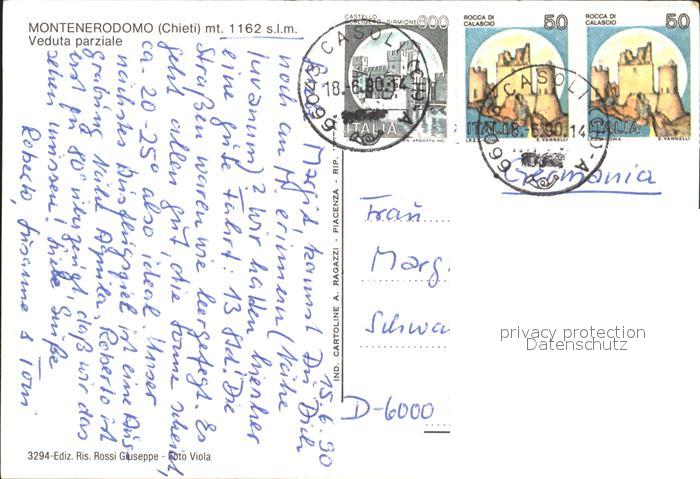 MONTENERODOMO (Chieti) mt. 1162 s.l.m.
Veduta parziale
15.6.90
Liebe Margit, kannst Du Dich
noch an M. erinnern (Nähe
Juvanum)? Wir hatten hierher
eine gute Fahrt: 13 Std. Die
Straßen waren wie leergefegt. Es
geht allen gut, die Sonne scheint,
ca. 20-25° also ideal. Unser
nächstes Ausflugsziel ist eine Aus-
grabung Nähe Aquila. Roberto ist
erst zu 80% überzeugt, daß wir das
sehen müssen! Liebe Grüße
Roberto, Susanne & Toni
3294-Ediz. Ris. Rossi Giuseppe - Foto Viola
IND. CARTOLINE A. RAGAZZI - PIACENZA - RIP.
CASTELLO
SCALIGERO - SIRMIONE
ITALIA
66043 CASOLI (CH)-A
18.-6.90.14
ROCCA DI
CALASCIO
50
ITALIA
E. VANGELLI
ROCCA DI
CALASCIO
50
ITALIA
E. VANGELLI
66043 CASOLI (CH)-A
18.-6.90.14
Germania
Frau
Marg
Schwa
D-6000
privacy protection
Datenschutz